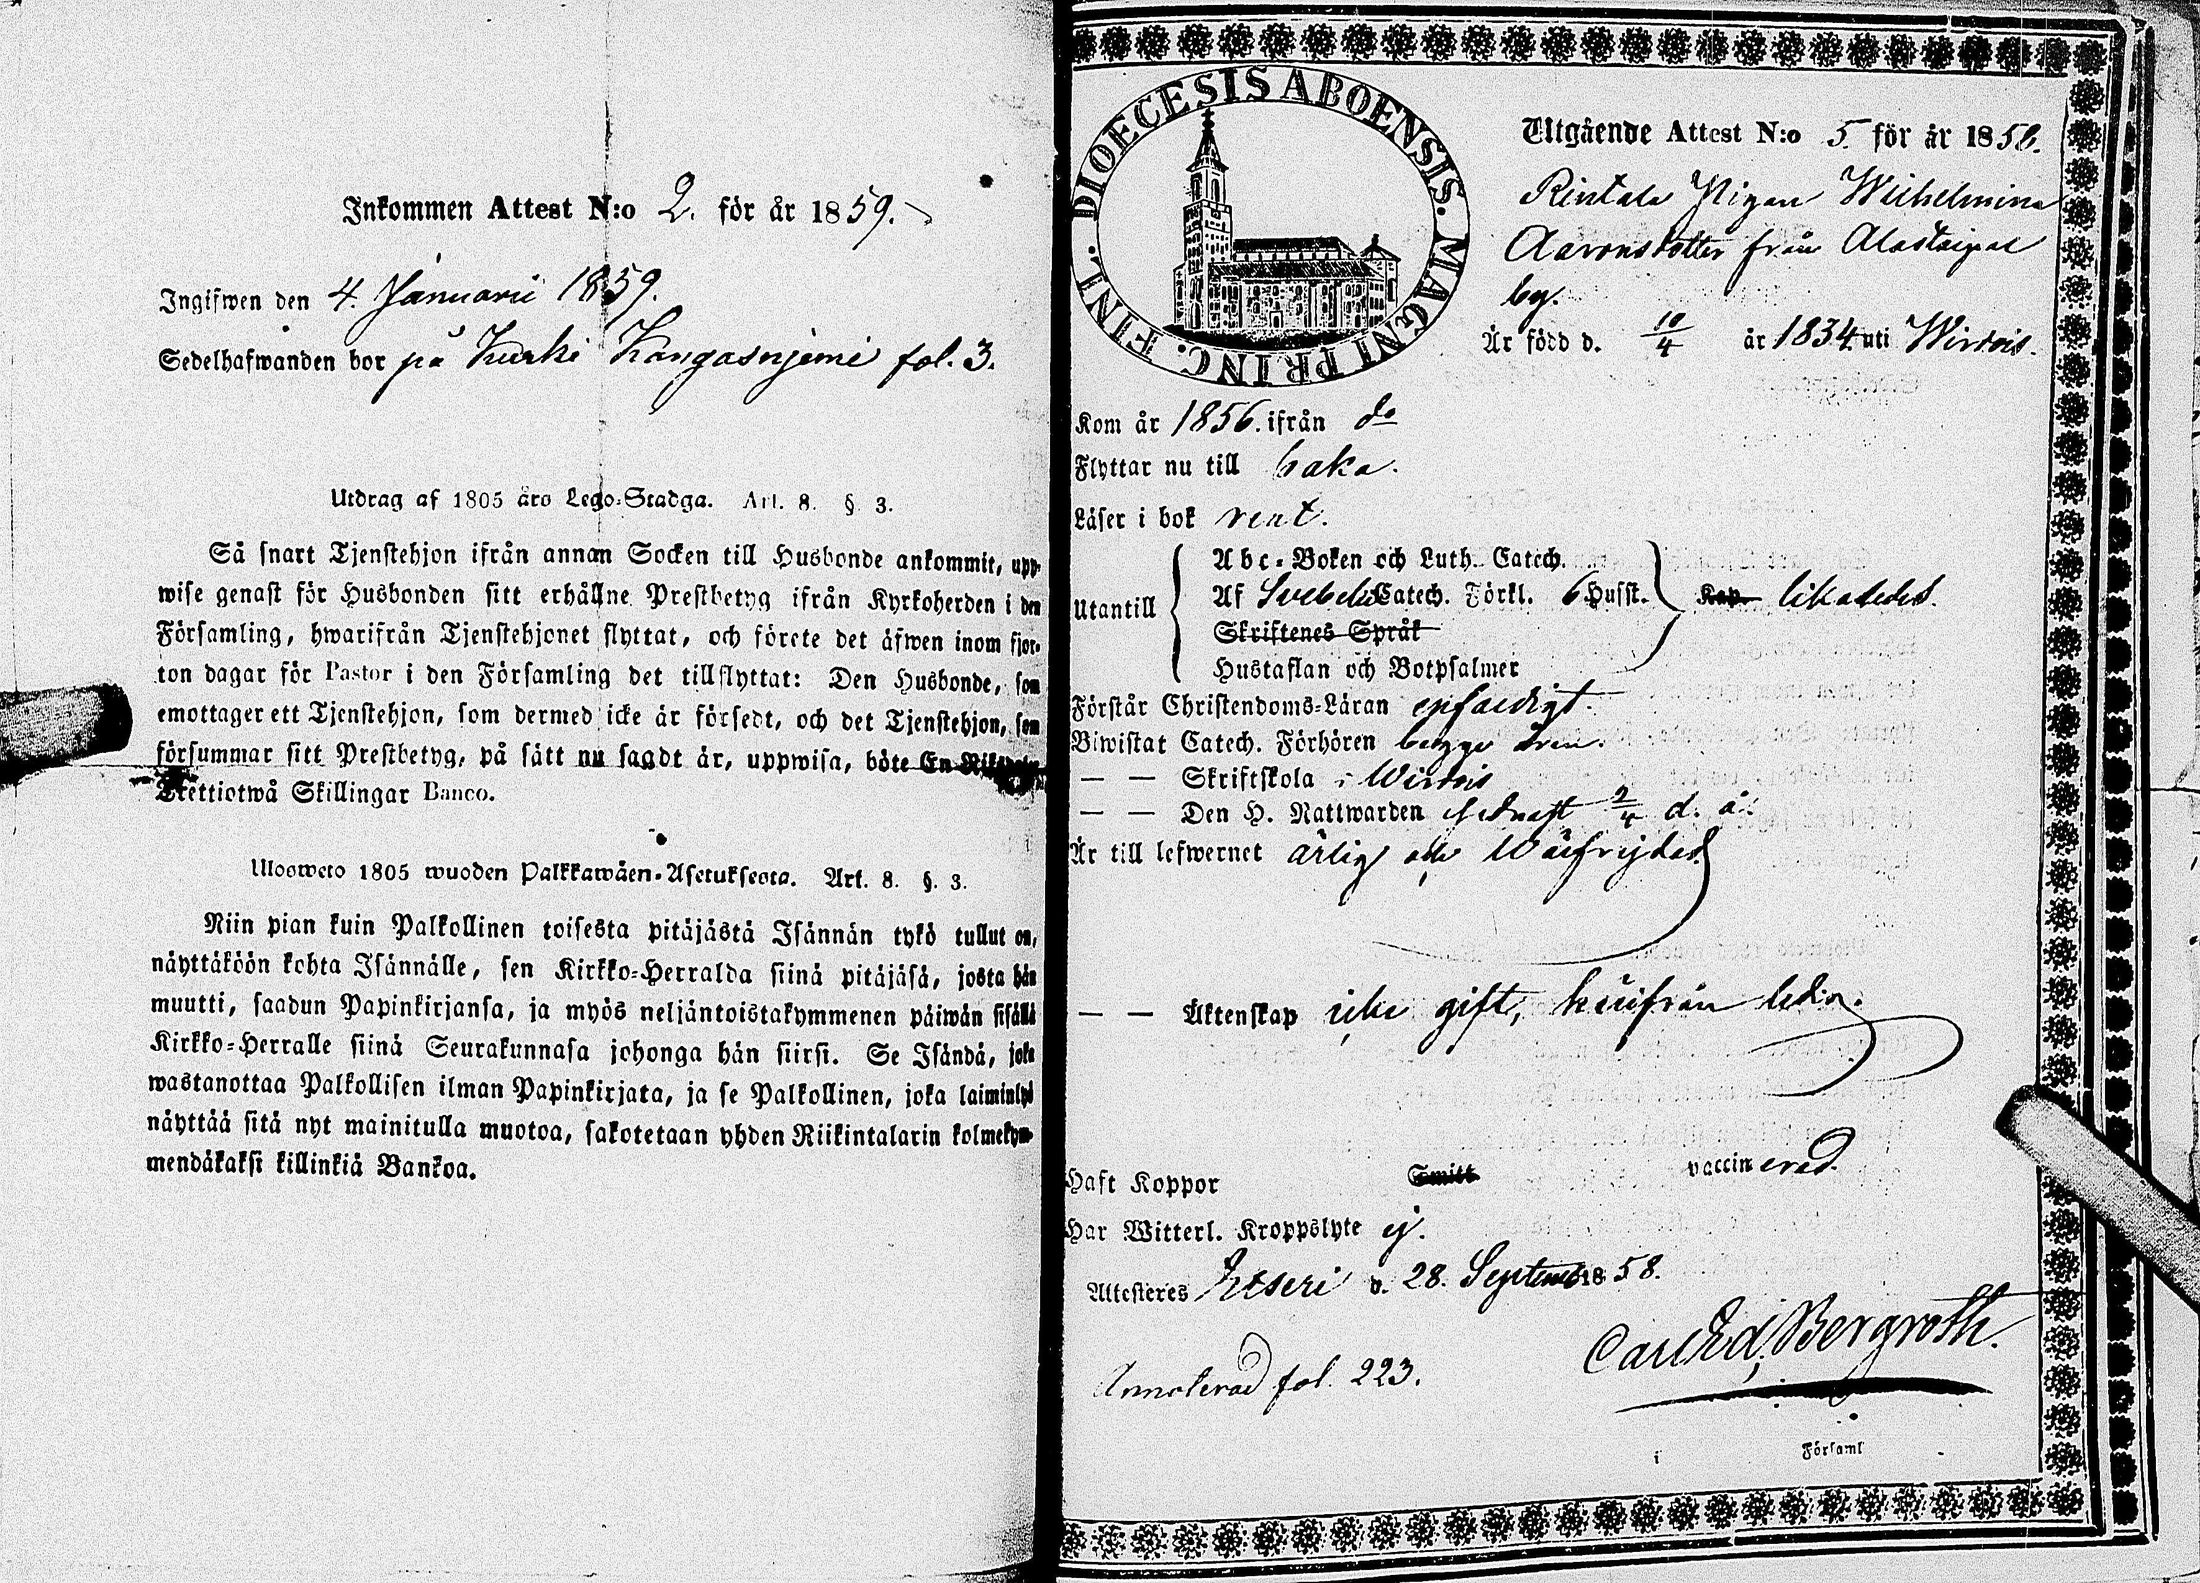 Inkommen Attest N:o 2. för år 1859.
Ingifwen den 4. Januarii 1859.
Sedelhafwanden bor på Kurki Kangasnjemi fol. 3.
Utdrag af 1805 års Lego-Stadga. Art. 8. § 3.
Så snart Tjenstehjon ifrån annan Socken till Husbonde ankommit, upp-
wise genast för Husbonden sitt erhållne Prestbetyg ifrån Kyrkoherden i den
Församling, hwarifrån Tjenstehjonet flyttat, och förete det äfwen inom fjor-
ton dagar för Pastor i den Församling det tillflyttat: Den Husbonde, som
emottager ett Tjenstehjon, som dermed icke är försedt, och det Tjenstehjon, som
försummar sitt Prestbetyg, på sätt nu sagdt är, uppwisa, böte En Riksdaler
Trettiotwå Skillingar Banco.
Ulosweto 1805 wuoden Palkkawäen-Asetuksesta. Art. 8. §. 3.
Niin pian kuin Palkollinen toisesta pitäjästä Isännän tykö tullut on,
näyttäköön kohta Isännälle, sen Kirkko-Herralda siinä pitäjäsä, josta hän
muutti, saadun Papinkirjansa, ja myös neljäntoistakymmenen päiwän sisällä
Kirkko-Herralle siinä Seurakunnasa johonga hän siirsi. Se Isändä, joka
wastanottaa Palkollisen ilman Papinkirjata, ja se Palkollinen, joka laiminlyö
näyttää sitä nyt mainitulla muotoa, sakotetaan yhden Riikintalarin kolmekym-
mendäkaksi killinkiä Bankoa.
DIOECESIS ABOENSIS. MAGNI PRINC. FINL.
Utgående Attest N:o 5. för år 1858.
Rintala Pigan Wilhelmina
Aaronsdotter från Alastaipal
by.
Är född d. 10/4 år 1834 uti Wirdois.
Kom år 1856. ifrån do
Flyttar nu till baka.
Läser i bok rent.
Abc-Boken och Luth. Catech.
Utantill Af Svebelii Catech. Förkl. 6 Husst. Kap. likaledes.
Skriftenes Språk
Hustaflan och Botpsalmer
Förstår Christendoms-Läran enfaldigt.
Biwistat Catech. Förhören begge åren.
— — Skriftskola i Wirdois
— — Den H. Nattwarden sednast 2/4 d. å.
Är till lefwernet ärlig och wälfrejdad
— — Äktenskap icke gift, härifrån ledig.
Haft Koppor Smitt vaccinerad.
Har Witterl. Kroppslyte ej.
Attesteres Etseri d. 28. Septemb 1858.
Carl Ed. Bergroth.
Annoterad fol. 223.
i Förfaml